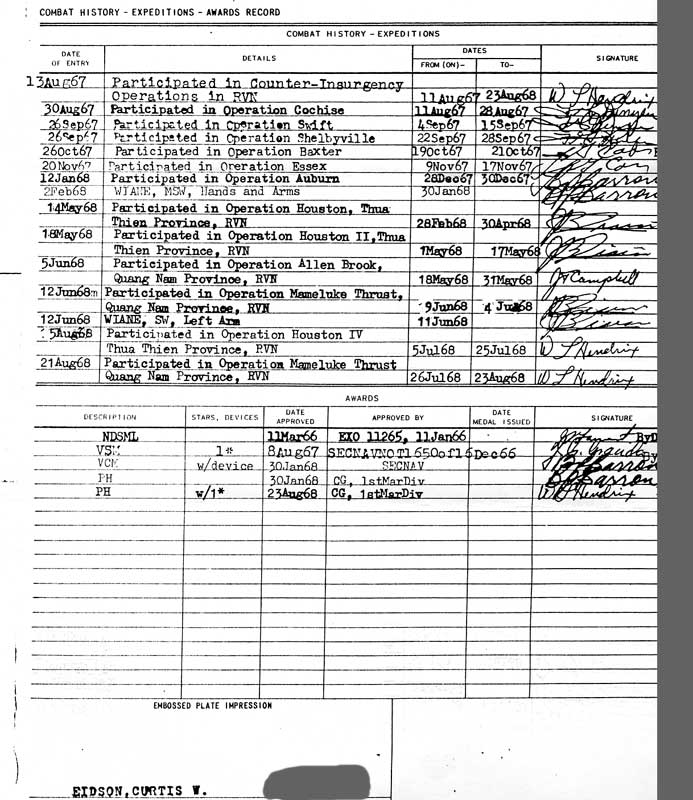 COMBAT HISTORY – EXPEDITIONS – AWARDS RECORD
COMBAT HISTORY – EXPEDITIONS
DATE OF ENTRY DETAILS DATES SIGNATURE
FROM (ON)– TO–
13Aug67 Participated in Counter-Insurgency
Operations in RVN 11Aug67 23Aug68 W L Hendrix
30Aug67 Participated in Operation Cochise 11Aug67 28Aug67
26Sep67 Participated in Operation Swift 4Sep67 15Sep67
26Sep67 Participated in Operation Shelbyville 22Sep67 28Sep67
26Oct67 Participated in Operation Baxter 19Oct67 21Oct67
20Nov67 Participated in Operation Essex 9Nov67 17Nov67
12Jan68 Participated in Operation Auburn 28Dec67 30Dec67 Barron
2Feb68 WIANE, MSW, Hands and Arms 30Jan68 Barron
14May68 Participated in Operation Houston, Thua
Thien Province, RVN 28Feb68 30Apr68
18May68 Participated in Operation Houston II,Thua
Thien Province, RVN 1May68 17May68
5Jun68 Participated in Operation Allen Brook,
Quang Nam Province, RVN 18May68 31May68 Campbell
12Jun68 Participated in Operation Mameluke Thrust,
Quang Nam Province, RVN 9Jun68
12Jun68 WIANE, SW, Left Arm 11Jun68
5Aug68 Participated in Operation Houston IV
Thua Thien Province, RVN 5Jul68 25Jul68 W L Hendrix
21Aug68 Participated in Operation Mameluke Thrust
Quang Nam Province, RVN 26Jul68 23Aug68 W L Hendrix
AWARDS
DESCRIPTION STARS, DEVICES DATE APPROVED APPROVED BY DATE MEDAL ISSUED SIGNATURE
NDSML 11Mar66 EXO 11265, 11Jan66
VSM 1* 8Aug67 SECNAVNOT1650of16Dec66
VCM w/device 30Jan68 SECNAV Barron
PH 30Jan68 CG, 1stMarDiv Barron
PH w/1* 23Aug68 CG, 1stMarDiv W L Hendrix
EMBOSSED PLATE IMPRESSION
EIDSON,CURTIS W.